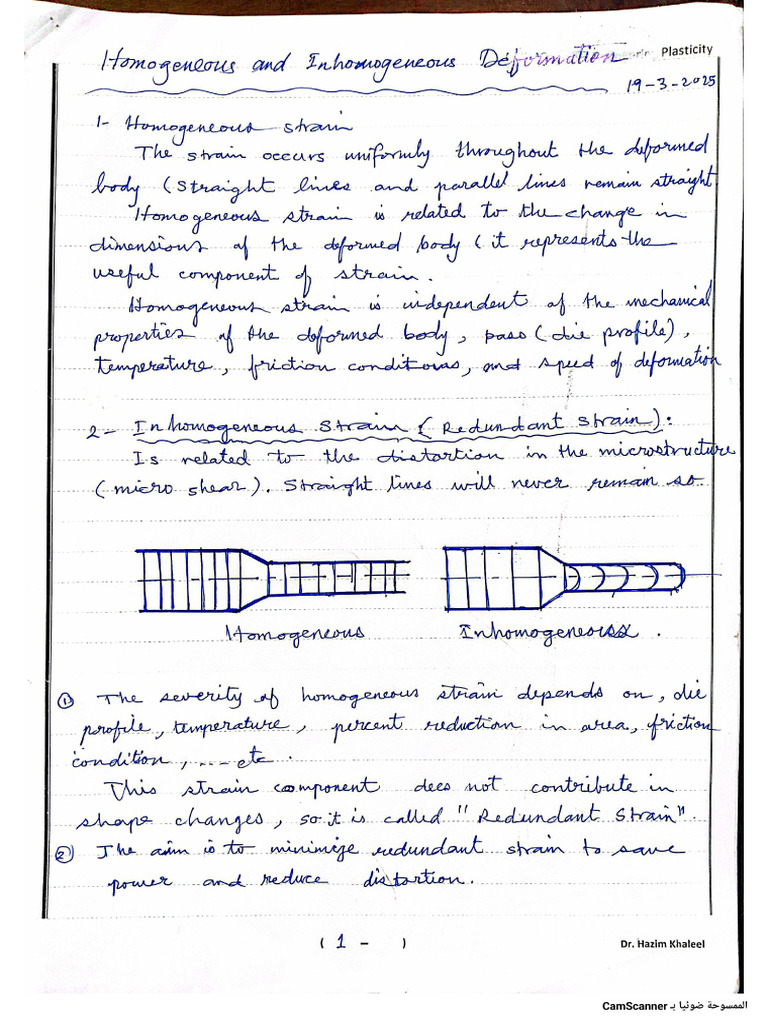 Plasticity
Homogeneous and Inhomogeneous Deformation
19-3-2025
1- Homogeneous strain
The strain occurs uniformly throughout the deformed
body (straight lines and parallel lines remain straight
Homogeneous strain is related to the change in
dimensions of the deformed body (it represents the
useful component of strain.
Homogeneous strain is independent of the mechanical
properties of the deformed body, pass (die profile),
temperature, friction conditions, and speed of deformation
2- Inhomogeneous Strain (Redundant strain):
Is related to the distortion in the microstructure
(micro shear). Straight lines will never remain so.
Homogeneous Inhomogeneous.
① The severity of homogeneous strain depends on, die
profile, temperature, percent reduction in area, friction
condition, ---- etc.
This strain component does not contribute in
shape changes, so it is called "Redundant Strain".
② The aim is to minimize redundant strain to save
power and reduce distortion.
( 1 - )
Dr. Hazim Khaleel
الممسوحة ضوئيا بـ CamScanner